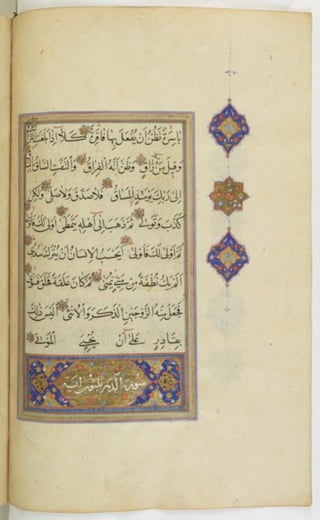 بَاسِرَةٌ تَظُنُّ أَن يُفْعَلَ بِهَا فَاقِرَةٌ كَلَّا إِذَا بَلَغَتِ التَّرَاقِيَ
وَقِيلَ مَنْ رَاقٍ وَظَنَّ أَنَّهُ الْفِرَاقُ وَالْتَفَّتِ السَّاقُ بِالسَّاقِ
إِلَى رَبِّكَ يَوْمَئِذٍ الْمَسَاقُ فَلَا صَدَّقَ وَلَا صَلَّى وَلَكِنْ
كَذَّبَ وَتَوَلَّى ثُمَّ ذَهَبَ إِلَى أَهْلِهِ يَتَمَطَّى أَوْلَى لَكَ فَأَوْلَى
ثُمَّ أَوْلَى لَكَ فَأَوْلَى أَيَحْسَبُ الْإِنْسَانُ أَنْ يُتْرَكَ سُدًى
أَلَمْ يَكُ نُطْفَةً مِنْ مَنِيٍّ يُمْنَى ثُمَّ كَانَ عَلَقَةً فَخَلَقَ فَسَوَّى
فَجَعَلَ مِنْهُ الزَّوْجَيْنِ الذَّكَرَ وَالْأُنْثَى أَلَيْسَ ذَلِكَ
بِقَادِرٍ عَلَى أَنْ يُحْيِيَ الْمَوْتَى
سورة الدهر ثلثون اية